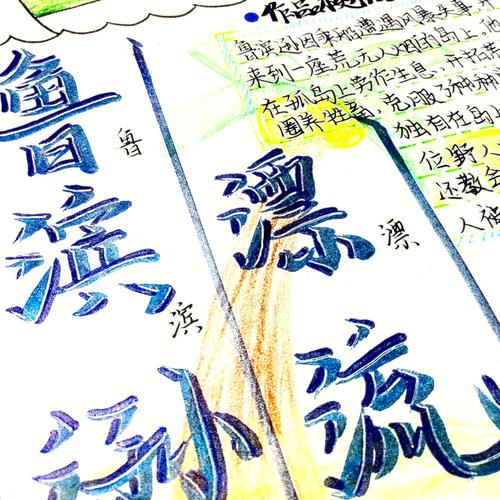 作品
鲁滨逊因乘船遭遇风暴失事
来到一座荒无人烟的岛上,
在孤岛上劳作生息,开拓荒
圈养牲畜,克服了种种
独有在岛
位野人
还教会
人
鲁
滨
孙
鲁
滨
漂
流
漂